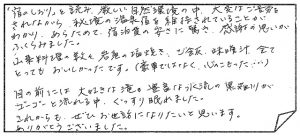 「宿のしおり」を読み、厳しい自然環境の中、大変なご苦労を
されながら、秘湯の温泉宿を維持されていることが
わかり、あらためて、宿泊食の安さに驚き、感謝の思いが
ふくらみました。
山菜料理の数々、岩魚の塩焼き、ご飯、味噌汁 全て
とってもおいしかったです。(豪華ではなく、心のこもった…)
目の前には大好きな滝の豊富な水流の黒部川が
ゴーゴーと流れる中、ぐっすり眠れました。
これからも、ぜひお世話になりたいと思います。
ありがとうございました。